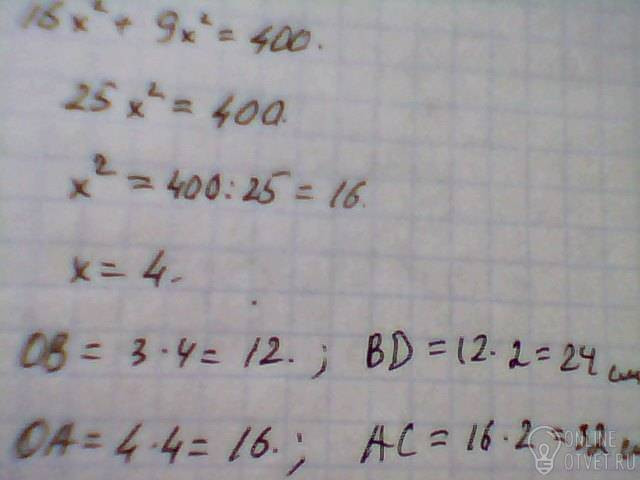 16x² + 9x² = 400.
25x² = 400.
x² = 400:25 = 16.
x = 4.
OB = 3·4 = 12. ; BD = 12·2 = 24 см
OA = 4·4 = 16. ; AC = 16·2 = 32 см
ONLINE
OTVET.RU